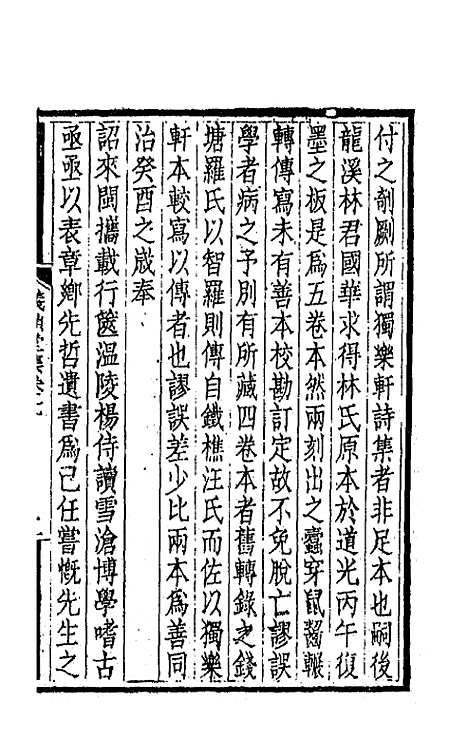 付之剞劂所謂獨樂軒詩集者非足本也嗣後
龍溪林君國華求得林氏原本於道光丙午復
墨之板是爲五卷本然兩刻出之蠹穿鼠齧輾
轉傳寫未有善本校勘訂定故不免脫亡謬誤
學者病之予別有所藏四卷本者舊轉錄之錢
塘羅氏以智羅則傳自鐵樵汪氏而佐以獨樂
軒本較寫以傳者也謬誤差少比兩本爲善同
治癸酉之歲奉
詔來閩攜載行篋溫陵楊侍讀雪滄博學嗜古
亟亟以表章鄉先哲遺書爲己任嘗慨先生之